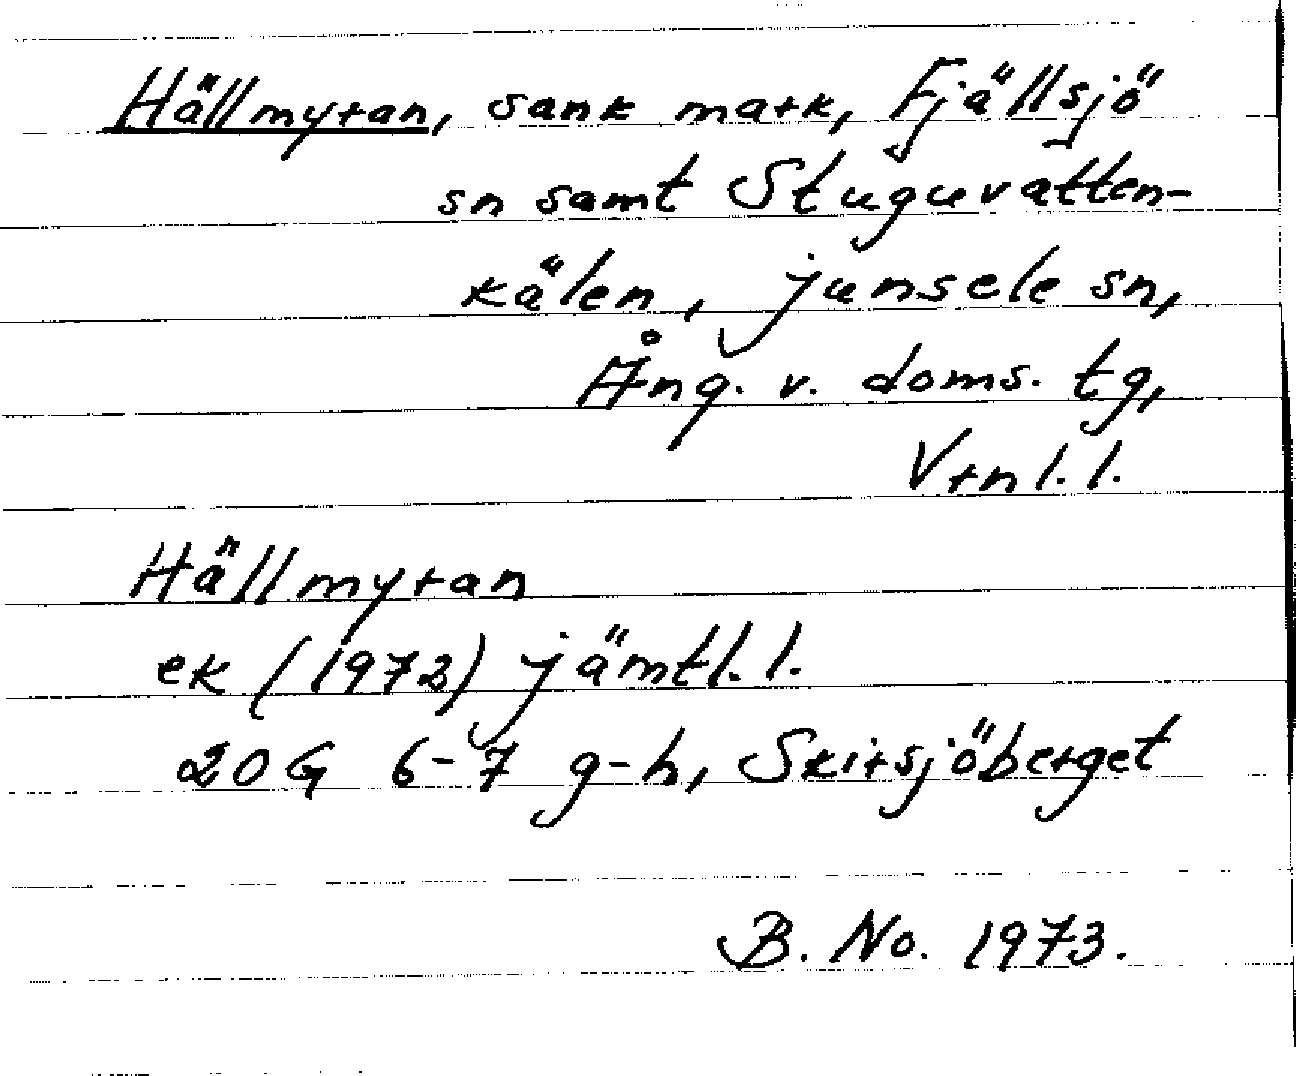 Hällmyran, sank mark, Fjällsjö
sn samt Stuguvatten-
kälen, Junsele sn,
Ång. v. doms. tg,
Vrnl. l.
Hällmyran
ek (1972) Jämtl. l.
20G 6-7 g-h, Skirsjöberget
B. No. 1973.